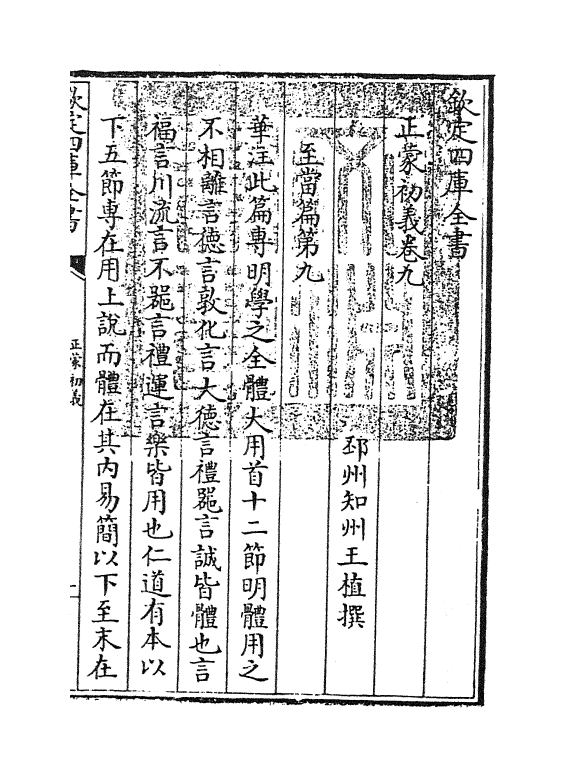 欽定四庫全書
正蒙初義卷九
邳州知州王植撰
至當篇第九
華注此篇專明學之全體大用首十二節明體用之
不相離言德言敦化言大德言禮器言誠皆體也言
福言川流言不器言禮運言樂皆用也仁道有本以
下五節專在用上說而體在其內易簡以下至末在
欽定四庫全書
正蒙初義